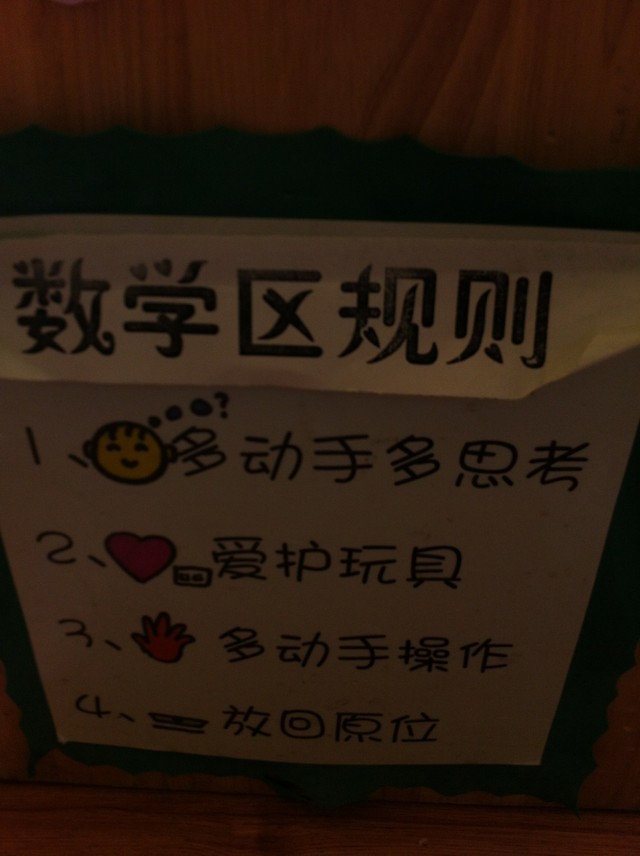 数学区规则
1、多动手多思考
2、爱护玩具
3、多动手操作
4、放回原位